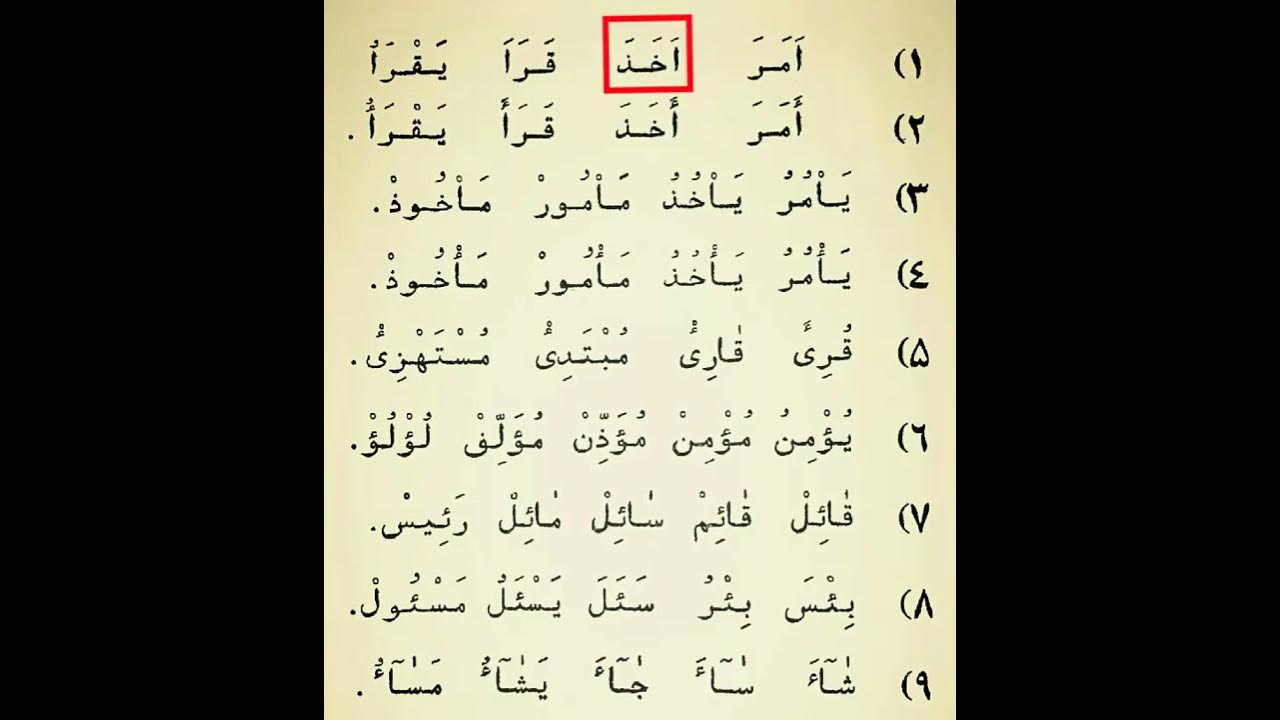 ١) اَمَرَ اَخَذَ قَرَاَ يَقْرَاُ
٢) أَمَرَ أَخَذَ قَرَأَ يَقْرَأُ.
٣) يَاْمُرُ يَاْخُذُ مَاْمُورْ مَاْخُوذْ.
٤) يَأْمُرُ يَأْخُذُ مَأْمُورْ مَأْخُوذْ.
۵) قُرِئَ قٰارِئُ مُبْتَدِئُ مُسْتَهْزِئُ.
٦) يُؤْمِنُ مُؤْمِنْ مُؤَذِّنْ مُؤَلِّفْ لُؤْلُؤْ.
٧) قٰائِلْ قٰائِمْ سٰائِلْ مٰائِلْ رَئِيسْ.
٨) بِئْسَ بِئْرُ سَئَلَ يَسْئَلُ مَسْئُولْ.
٩) شٰآءَ سٰآءَ جٰآءَ يَشٰآءُ مَسٰآءُ.